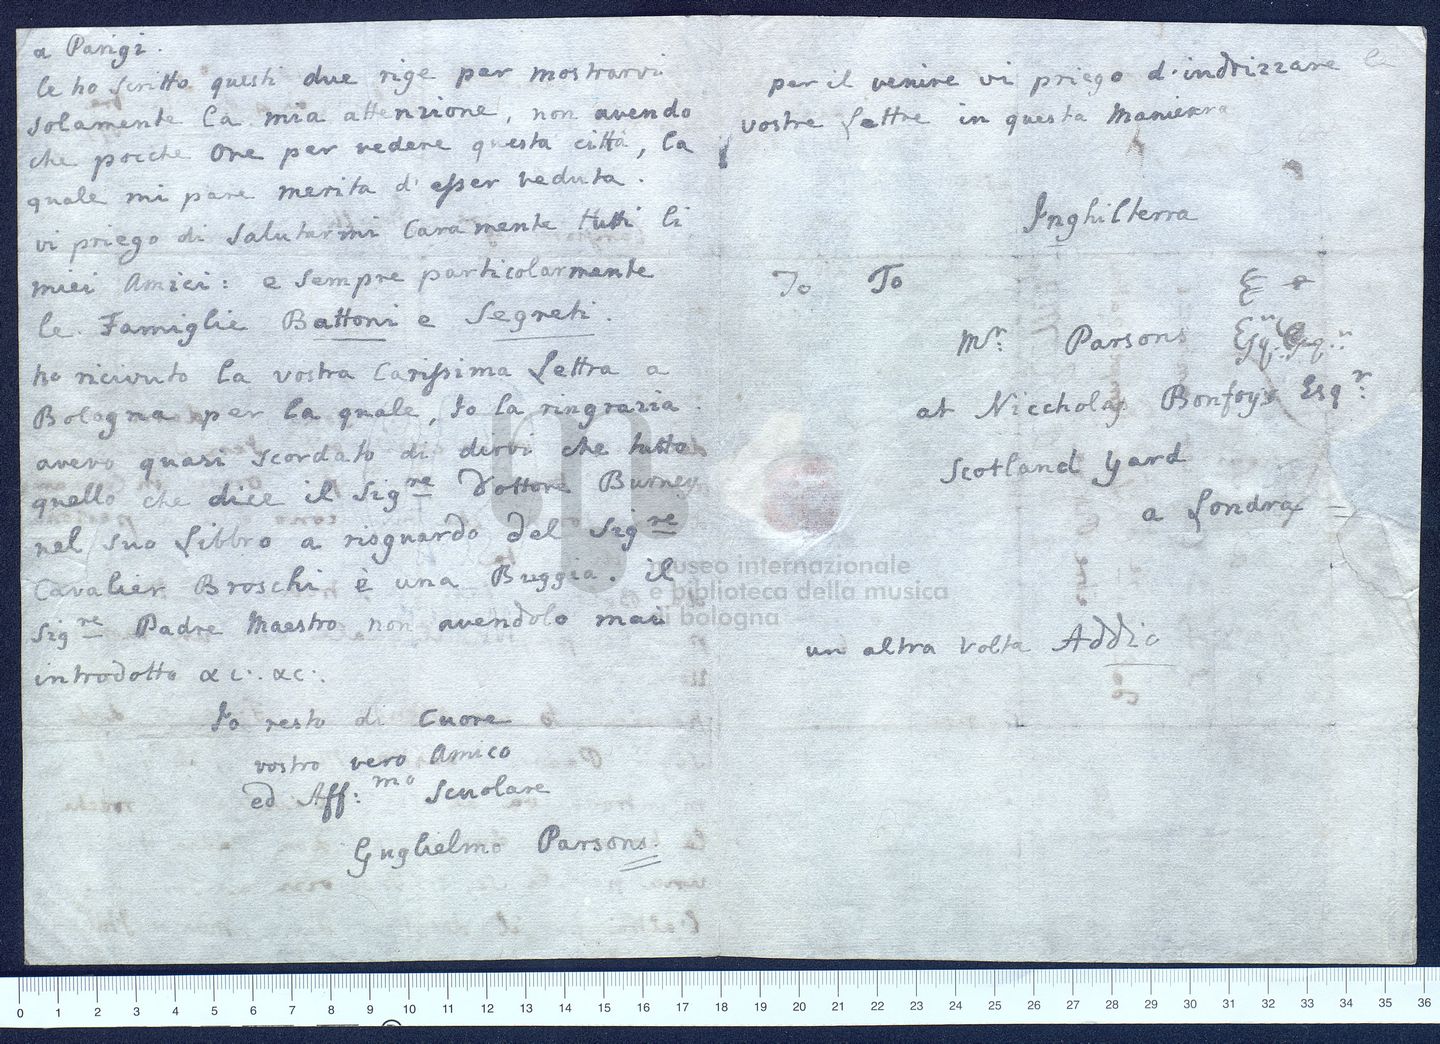 a Parigi.
le ho scritto questi due rige per mostrarvi
solamente la mia attenzione, non avendo
che pocche Ore per vedere questa città, la
quale mi pare merita d'esser veduta.
vi priego di salutarmi Caramente tutti li
miei Amici: e sempre particolarmente
le Famiglie Battoni e Segreti.
ho ricivuto la vostra Carissima Lettra a
Bologna per la quale, Io la ringrazia.
avevo quasi scordato di dirvi che tutto
quello che dice il Sigre Dottore Burney
nel suo Libbro a risguardo del Sigre
Cavalier Broschi è una Buggia. il
Sigre Padre Maestro non avendolo mai
introdotto &c:. &c:.
Io resto di Cuore
vostro vero Amico
ed Aff:mo Scuolare
Guglielmo Parsons.
per il venire vi priego d'indrizzare le
vostre Lettre in questa Manierra
Inghilterra
To To
Mr: Parsons
at Niccholas Bonfoys Esqr:
Scotland Yard
a Londra
un altra Volta Addio
museo internazionale
e biblioteca della musica
di bologna
0 1 2 3 4 5 6 7 8 9 10 11 12 13 14 15 16 17 18 19 20 21 22 23 24 25 26 27 28 29 30 31 32 33 34 35 36
5 6 7 8